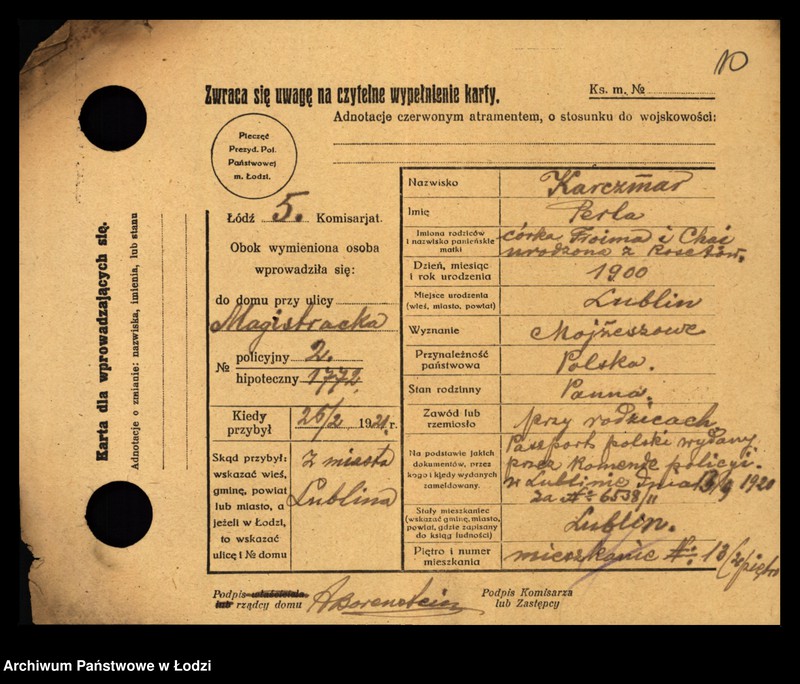 10
Zwraca się uwagę na czytelne wypełnienie karty.
Ks. m. №
Adnotacje czerwonym atramentem, o stosunku do wojskowości:
Pieczęć
Prezyd. Pol.
Państwowej
m. Łodzi.
Karta dla wprowadzających się.
Adnotacje o zmianie: nazwiska, imienia, lub stanu
Łódź 5. Komisarjat.
Obok wymieniona osoba
wprowadziła się:
do domu przy ulicy
Magistracka
№ policyjny 2.
hipoteczny 1772
Kiedy przybył 25/2 1921 r.
Skąd przybył:
wskazać wieś,
gminę, powiat
lub miasto, a
jeżeli w Łodzi,
to wskazać
ulicę i № domu
z miasta
Lublina
Nazwisko Karczmar
Imię Perla
Imiona rodziców
i nazwisko panieńskie
matki
córka Froima i Chai
urodzona z
Dzień, miesiąc
i rok urodzenia
1900
Miejsce urodzenia
(wieś, miasto, powiat)
Lublin
Wyznanie Mojżeszowe
Przynależność
państwowa
Polska.
Stan rodzinny Panna.
Zawód lub
rzemiosło
przy rodzicach
Na podstawie jakich
dokumentów, przez
kogo i kiedy wydanych
zameldowany.
Paszport polski wydany
przez policyi.
w Lublinie dnia 13/9 1920
za № 6538/II
Stały mieszkaniec
(wskazać gminę, miasto,
powiat, gdzie zapisany
do ksiąg ludności)
Lublin.
Piętro i numer
mieszkania
mieszkanie №: 13 (2 piętro
Podpis właściciela
lub rządcy domu
Borensztein
Podpis Komisarza
lub Zastępcy
Archiwum Państwowe w Łodzi